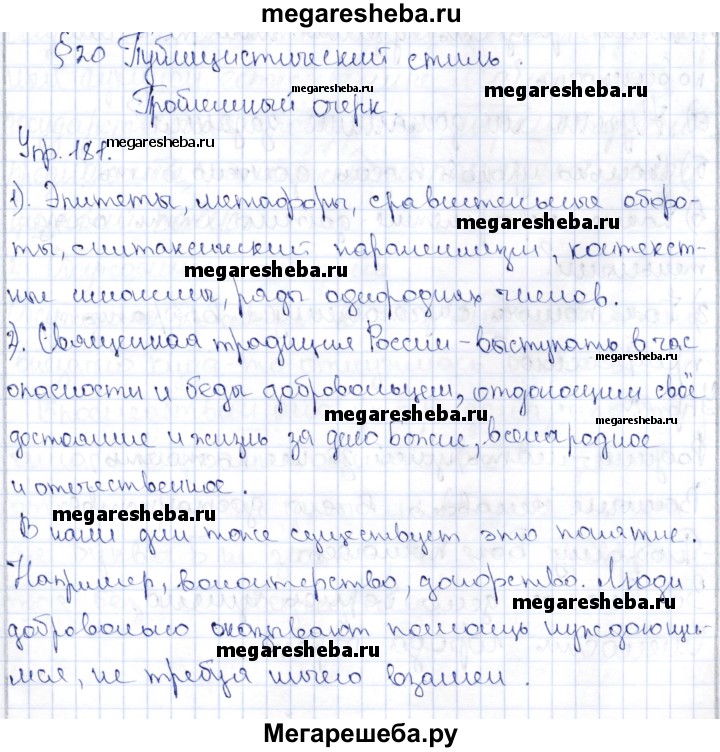 megaresheba.ru
§20 Публицистический стиль.
megaresheba.ru
megaresheba.ru
Проблемный очерк.
Упр. 181.
megaresheba.ru
1). Эпитеты, метафоры, сравнительные оборо-
megaresheba.ru
ты, синтаксический параллелизм, контекст-
megaresheba.ru
ные синонимы, ряды однородных членов.
2). Священная традиция России - выступать в час
megaresheba.ru
опасности и беды добровольцем, отдающим своё
megaresheba.ru
megaresheba.ru
достояние и жизнь за дело Божие, всенародное
и отечественное.
megaresheba.ru
В наши дни тоже существует это понятие.
Например, волонтерство, донорство. Люди
megaresheba.ru
добровольно оказывают помощь нуждающи-
megaresheba.ru
мся, не требуя ничего взамен.
Мегарешеба.ру